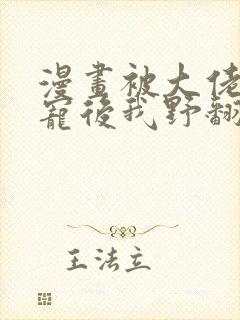 漫畫被大佬
寵後我野翻
王法立